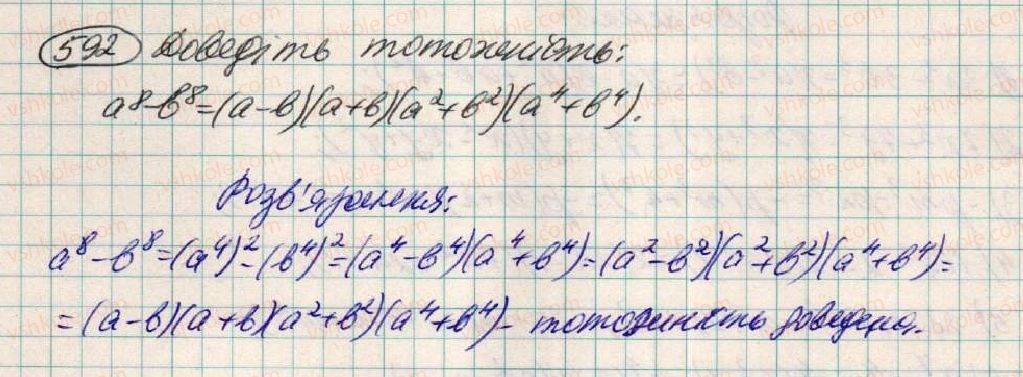 592 Доведіть тотожність:
a⁸-b⁸=(a-b)(a+b)(a²+b²)(a⁴+b⁴).
Розв'язання:
a⁸-b⁸=(a⁴)²-(b⁴)²=(a⁴-b⁴)(a⁴+b⁴)=(a²-b²)(a²+b²)(a⁴+b⁴)=
=(a-b)(a+b)(a²+b²)(a⁴+b⁴)- тотожність доведена.